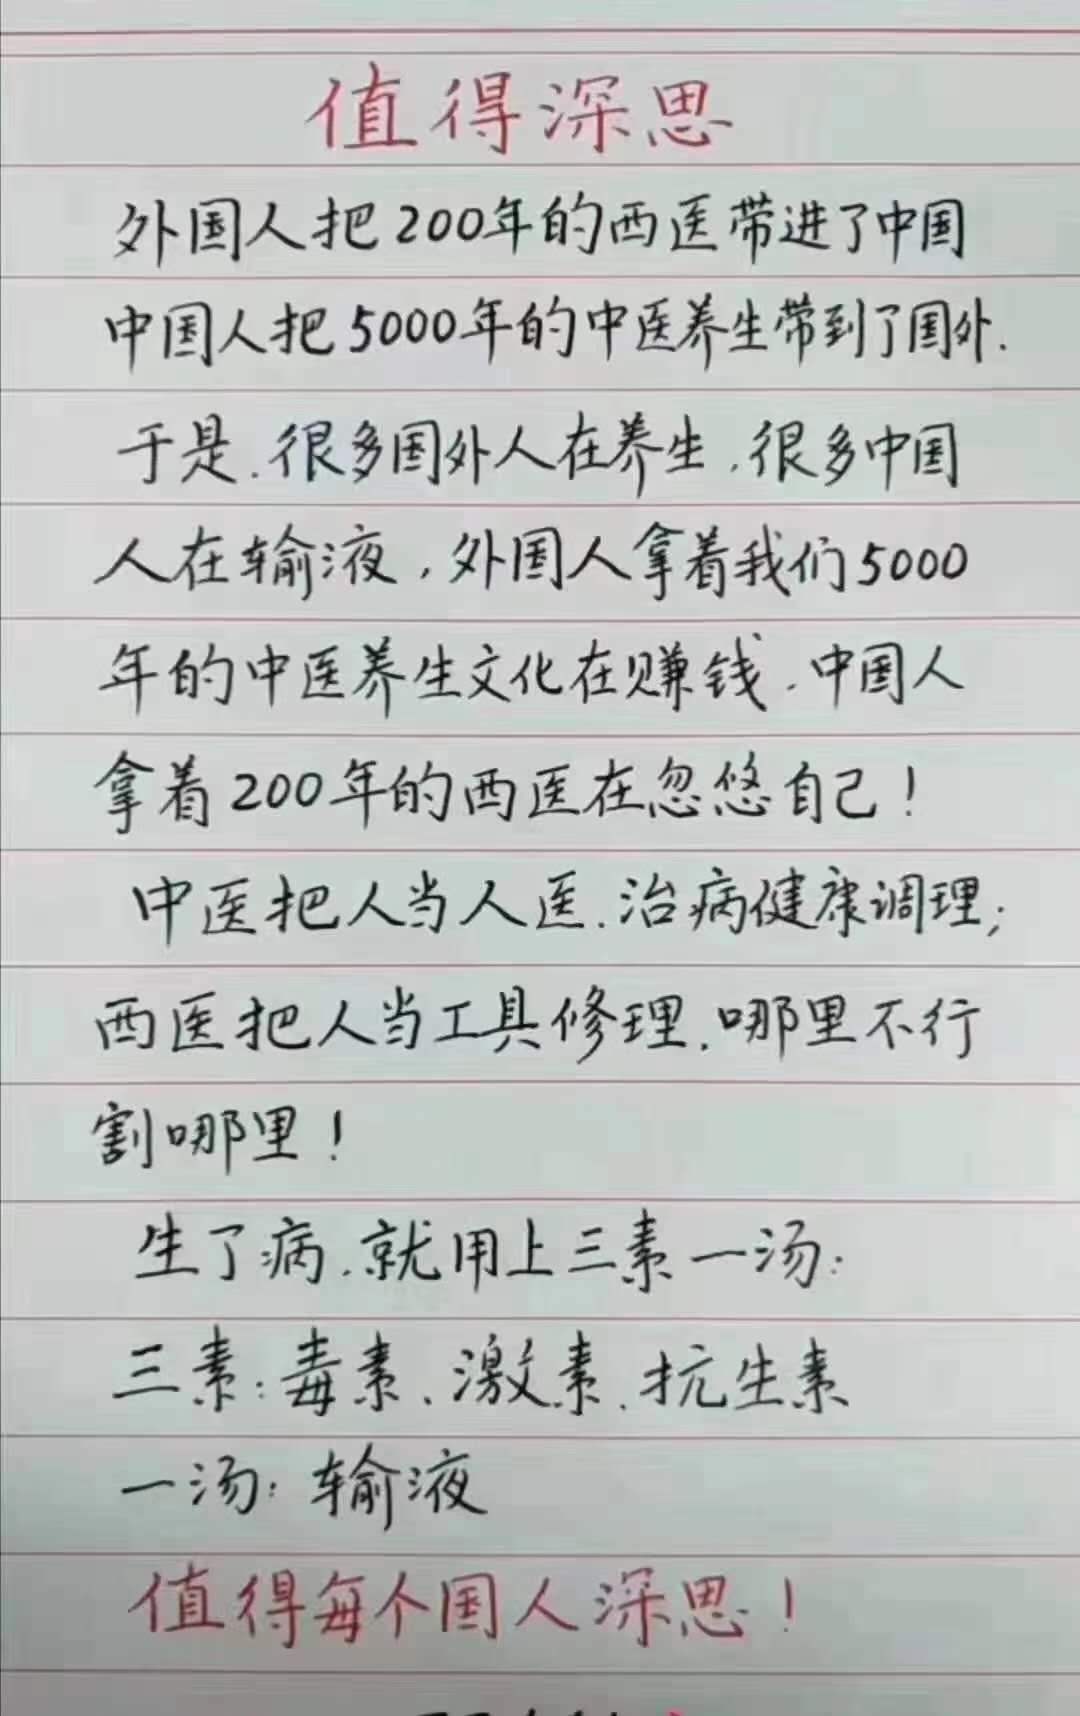 值得深思
外国人把200年的西医带进了中国
中国人把5000年的中医养生带到了国外.
于是.很多国外人在养生,很多中国
人在输液,外国人拿着我们5000
年的中医养生文化在赚钱.中国人
拿着200年的西医在忽悠自己!
中医把人当人医.治病健康调理;
西医把人当工具修理.哪里不行
割哪里!
生了病.就用上三素一汤:
三素:毒素、激素、抗生素
一汤:输液
值得每个国人深思!